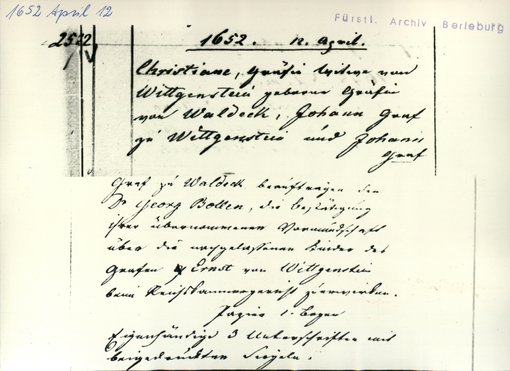 1652 April 12
Fürstl. Archiv Berleburg
2522
1652. 12. April.
Christiane, Gräfin Witwe von
Wittgenstein geborne Gräfin
von Waldeck, Johann Graf
zu Wittgenstein und Johann
Graf
Graf zu Waldeck beauftragen den
Dr Georg Bollen, die Bestätigung
ihrer übernommenen Vormundschaft
über die nachgelassenen Kinder des
Grafen Ernst von Wittgenstein
beim Reichskammergericht zu erwirken.
Papier 1. Bogen
Eigenhändige 3 Unterschriften mit
beigedruckten Siegeln.